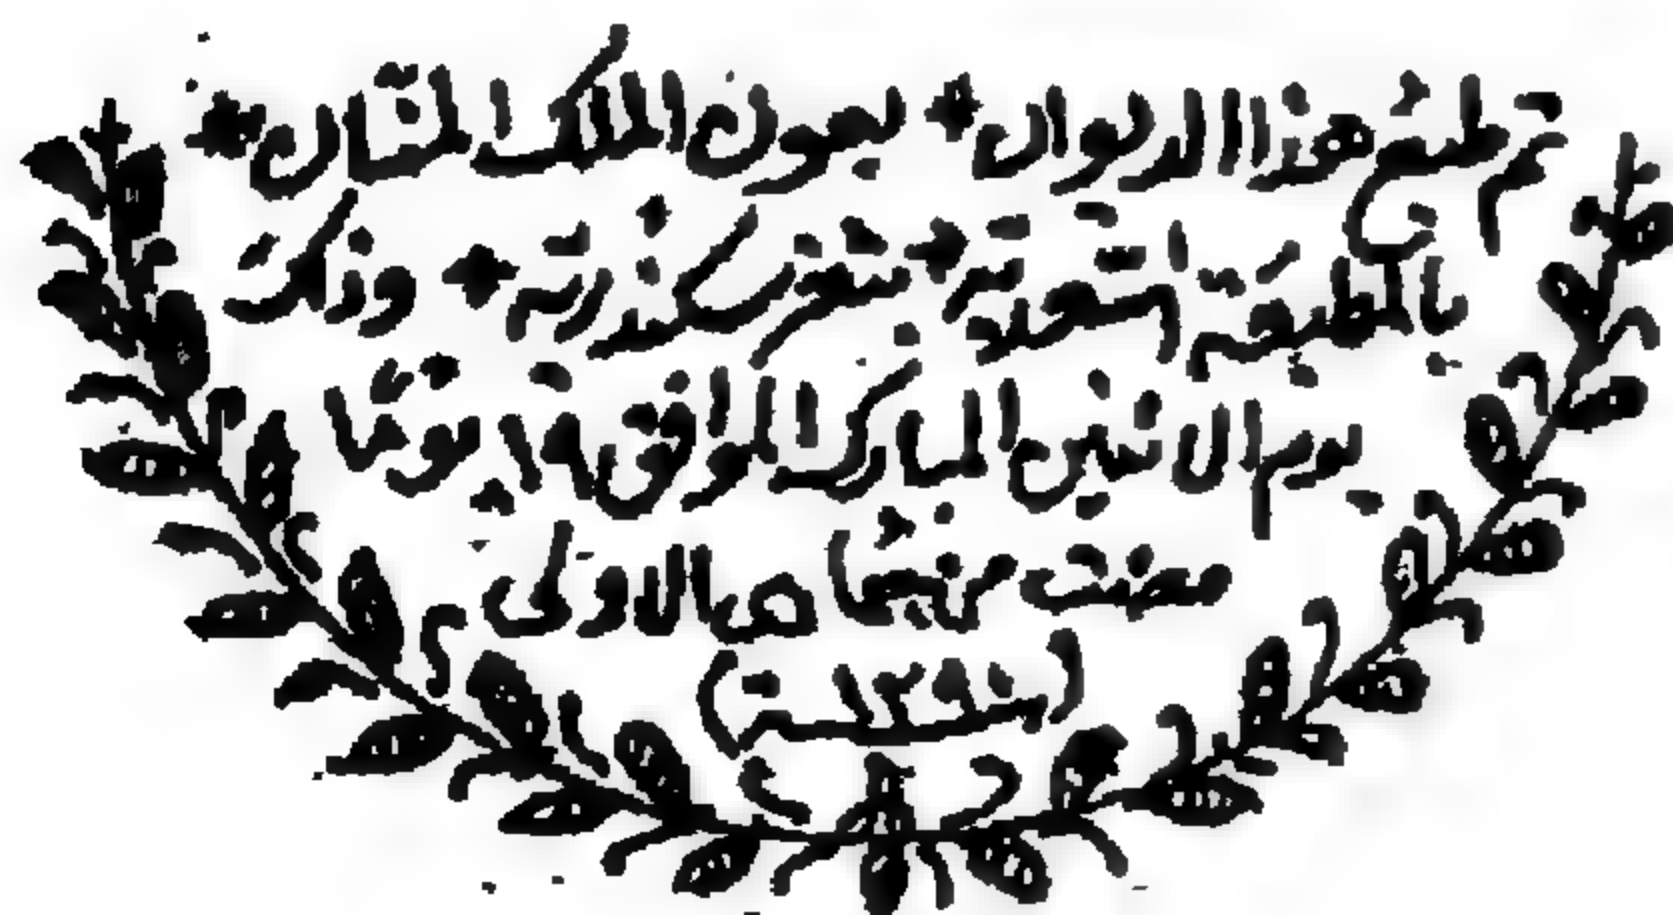 تم طبع هذا الديوان * بعون الملك المنان *
بالمطبعة السعدية * بثغر سكندرية * وذلك
يوم الاثنين المبارك الموافق ١٩ يوما
مضت من جما هـ الاولى
(سنة ١٢٩٠)